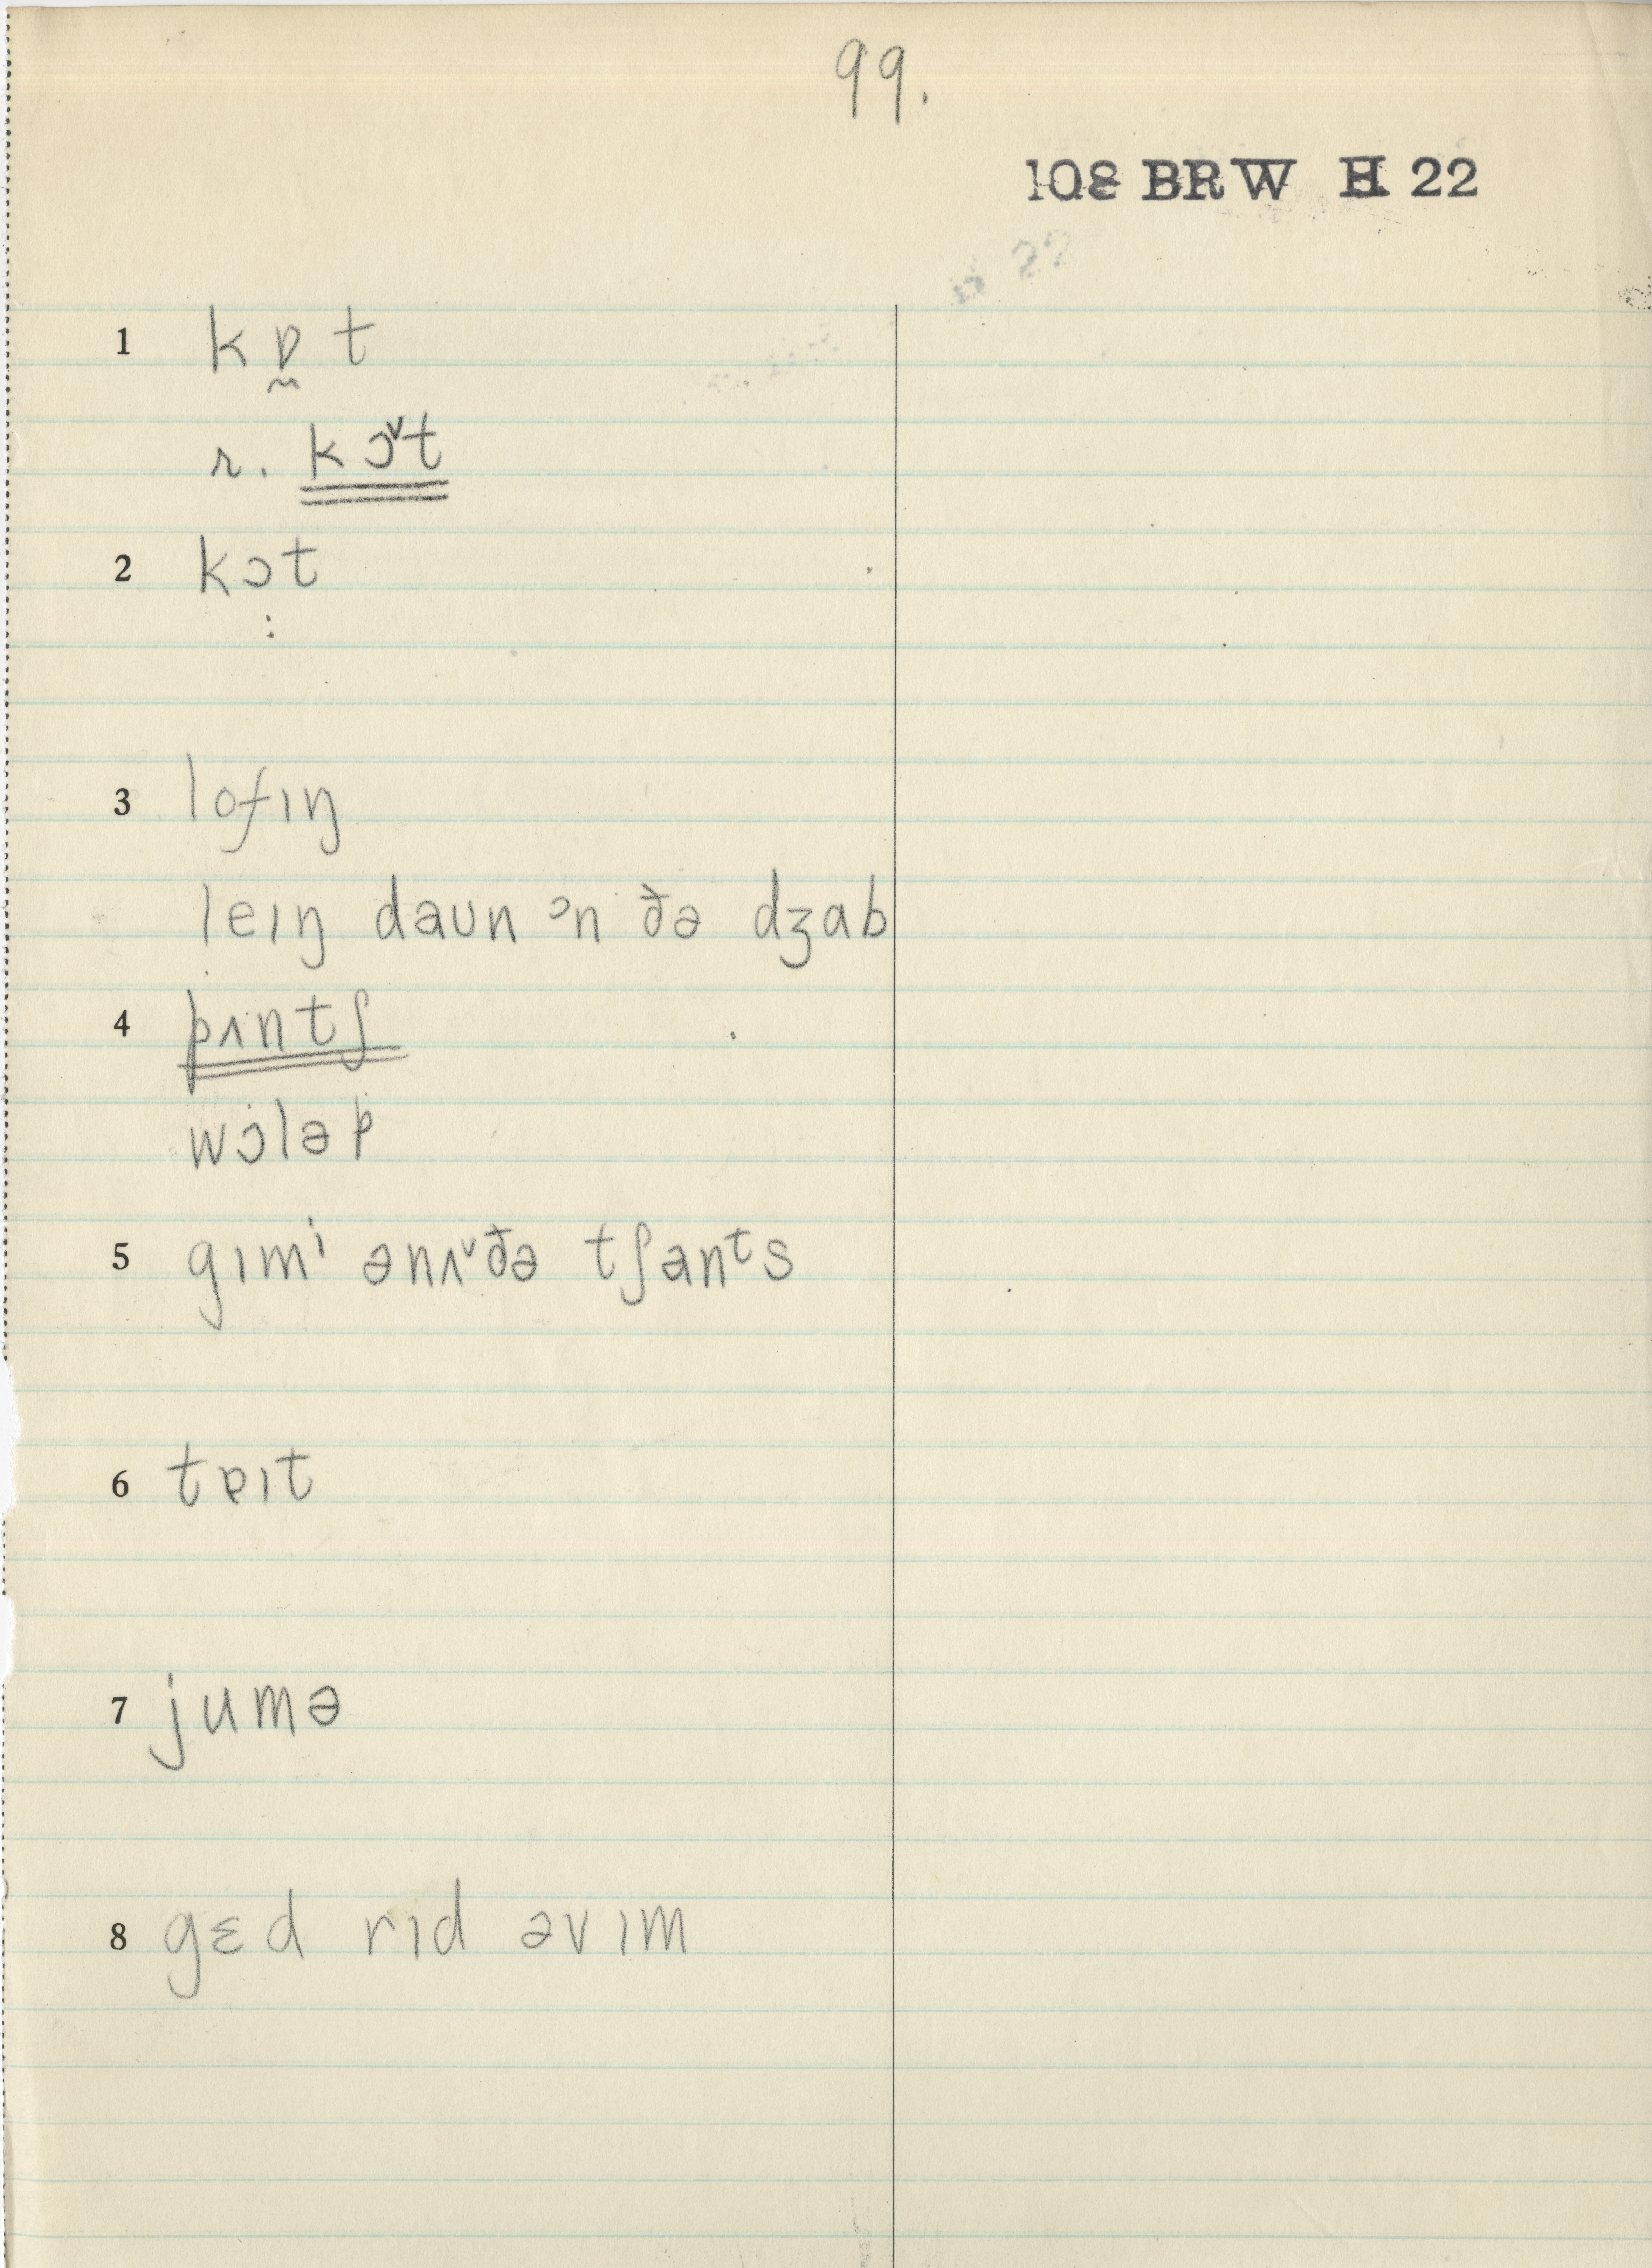 99.
108 BRW H 22
1 kɒ̰t
r. kɔˇt
2 kɔt
:
3 lofɪŋ
leɪŋ daʊn ᵓn ðə dʒab
4 pʌntʃ
wɔləp
5 gɪmⁱ ənʌˇðə tʃanᵗs
6 tɐɪt
7 jumə
8 gɛd rɪd əvɪm